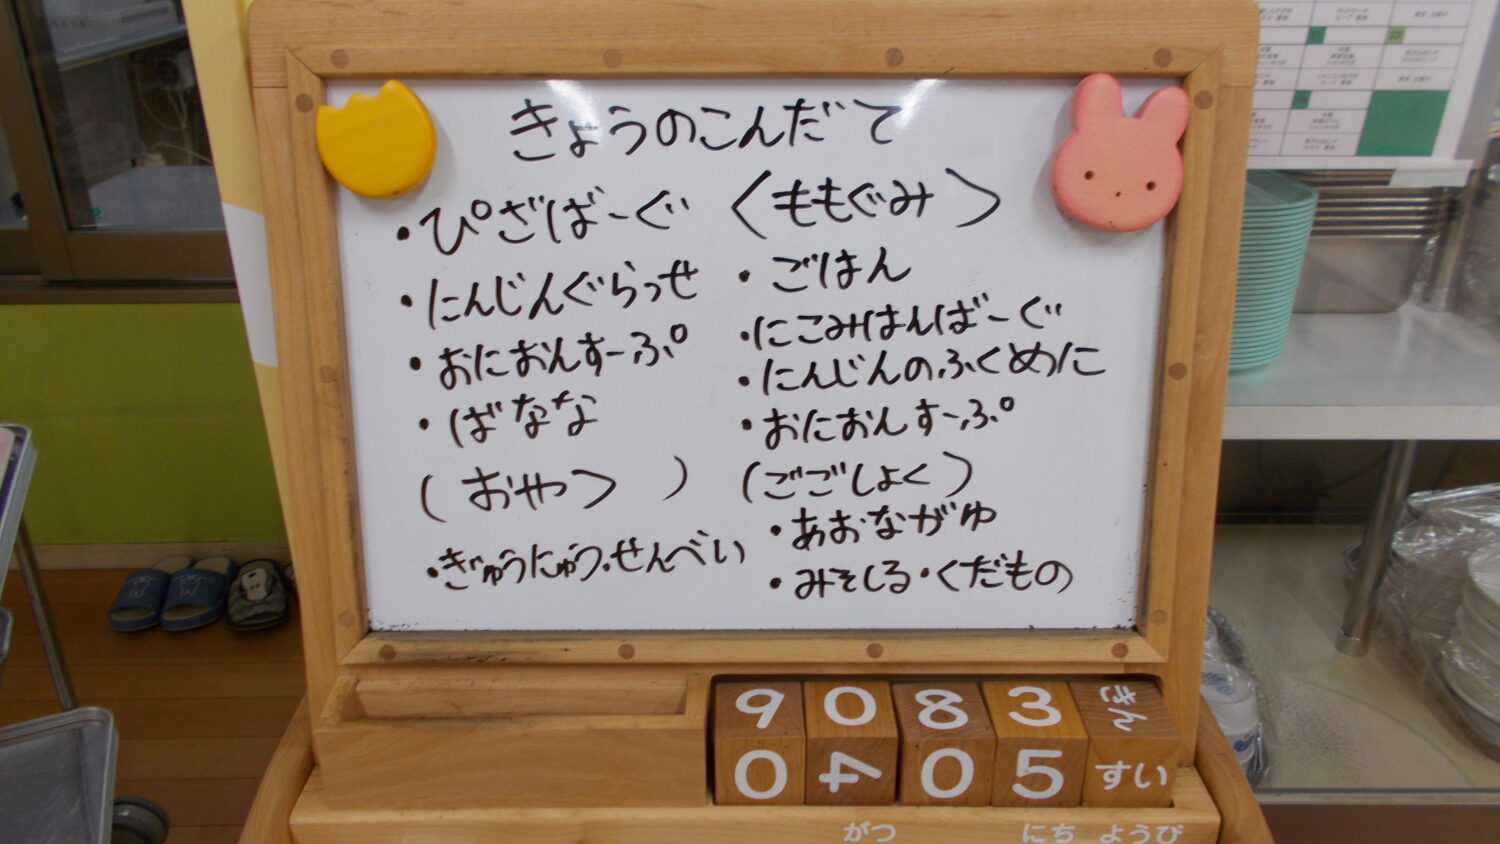 きょうのこんだて
・ぴざばーぐ
・にんじんぐらっせ
・おにおんすーぷ
・ばなな
(おやつ)
・ぎゅうにゅう・せんべい
〈ももぐみ〉
・ごはん
・にこみはんばーぐ
・にんじんのふくめに
・おにおんすーぷ
(ごごしょく)
・あおながゆ
・みそしる・くだもの
9 0 8 3 きん
0 4 0 5 すい
がつ にち ようび